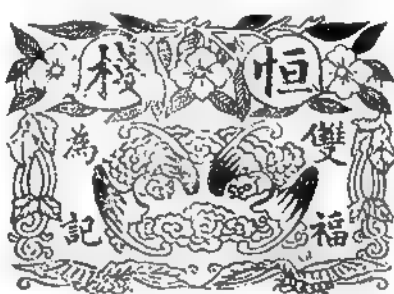 恒棧
雙福
為記